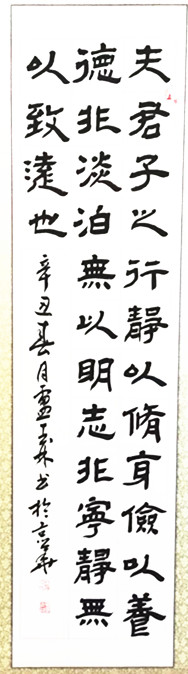 夫君子之行靜以脩身儉以養
德非淡泊無以明志非寧靜無
以致遠也
辛丑春月盧玉來書於京華